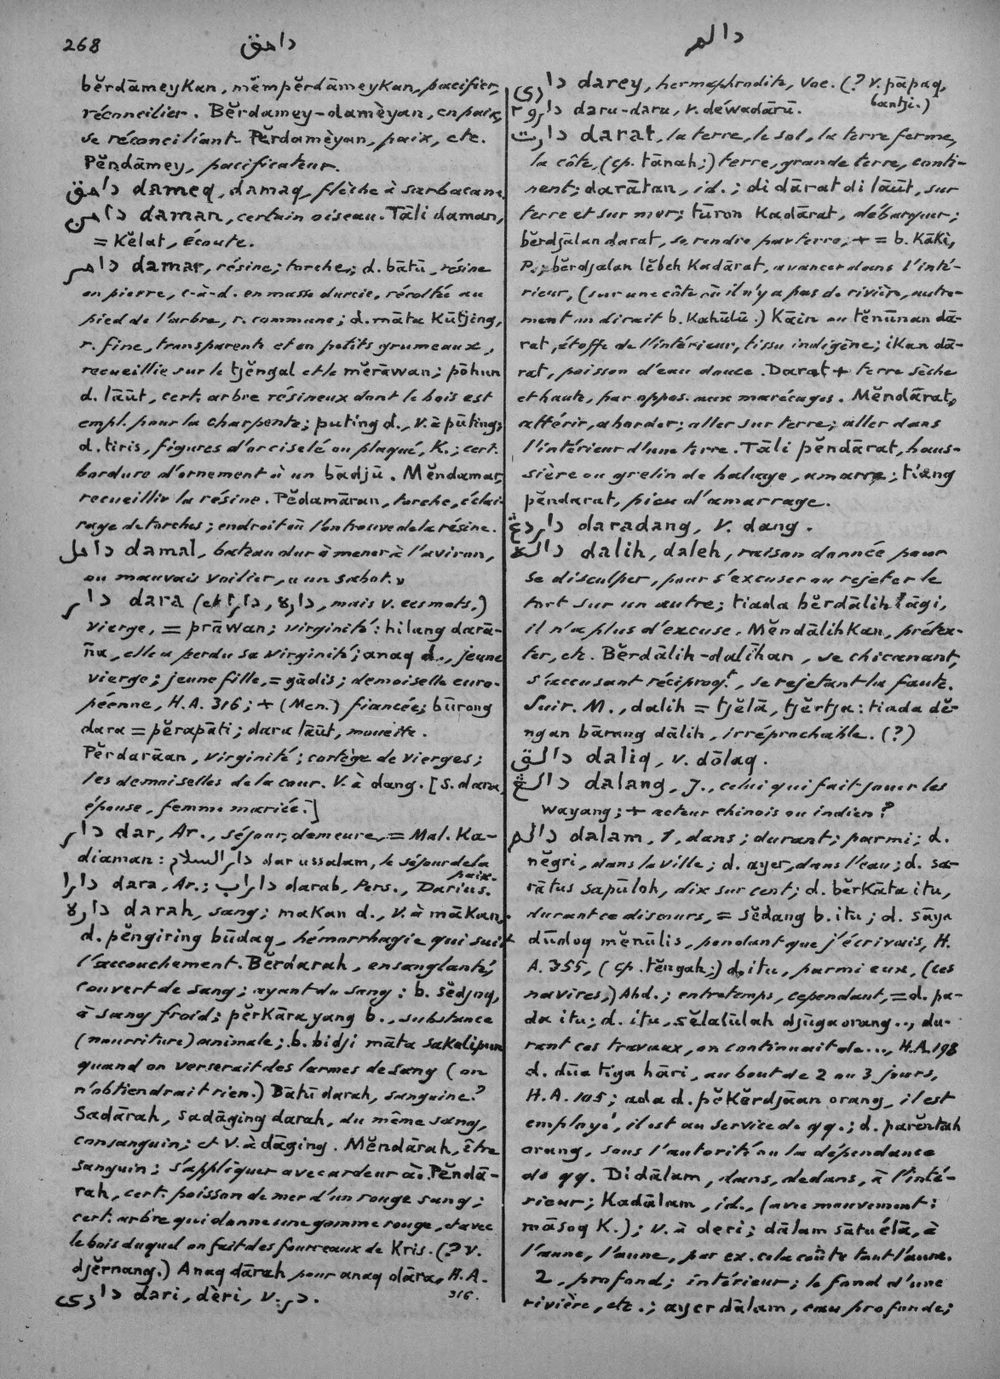 268 دامق دالم
bĕrdāmeykan, mĕmpĕrdāmeykan, pacifier,
réconcilier. Bĕrdamey-damèyan, en paix,
se réconciliant. Pĕrdamèyan, paix, etc.
Pĕndāmey, pacificateur.
دامق dameq, damaq, flèche à sarbacane
دامن daman, certain oiseau. Tāli daman,
= Kĕlat, écoute.
دامر damar, résine; torche; d. bātū, résine
en pierre, c-à-d. en masse durcie, récoltée au
pied de l'arbre, r. commune; d. māta Kūtjing,
r. fine, transparente et en petits grumeaux,
recueillie sur le tjĕngal et le mĕrāwan; pōhun
d. lāūt, cert. arbre résineux dont le bois est
empl. pour la charpente; puting d., v. à pūting;
d. tiris, figures d'or ciselé ou plaqué, K.; cert.
bordure d'ornement à un bādjū. Mĕndamar,
recueillir la résine. Pĕdamāran, torche, éclai-
rage de torches; endroit où l'on trouve de la résine.
دامل damal, bateau dur à mener à l'aviron,
ou mauvais voilier, « un sabot. »
دار dara (et دارا, داره, mais v. ces mots.)
vierge, = prāwan; virginité: hilang darā-
ña, elle a perdu sa virginité; anaq d., jeune
vierge; jeune fille, = gādis; demoiselle euro-
péenne, H.A. 316; + (Men.) fiancée; būrong
dara = pĕrapāti; dara lāūt, mouette.
Pĕrdarāan, virginité; cortège de vierges;
les demoiselles de la cour. V. à dang. [S. dara,
épouse, femme mariée.]
دار dar, Ar., séjour, demeure, = Mal. Ka-
diaman: دار السلام dar ussalam, le séjour de la
paix.
دارا dara, Ar.; داراب darab, Pers., Darius.
داره darah, sang; makan d., v. à mākan.
d. pĕngiring būdaq, hémorrhagie qui suit
l'accouchement. Bĕrdarah, ensanglanté,
couvert de sang; ayant du sang: b. sĕdjuq,
à sang froid; pĕrkāra yang b., substance
(nourriture) animale; b. bidji māta sakalipun
quand on verserait des larmes de sang (on
n'obtiendrait rien.) Bātū darah, sanguine?
Sadārah, sadāging darah, du même sang,
consanguin; et v. à dāging. Mĕndārah, être
sanguin; s'appliquer avec ardeur à. Pĕndā-
rah, cert. poisson de mer d'un rouge sang;
cert. arbre qui donne une gomme rouge, et avec
le bois duquel on fait des fourreaux de Kris. (? v.
djĕrnang.) Anaq dārah pour anaq dāra, H.A.
316.
داري dari, dèri, v. در.
داري darey, hermaphrodite, Voc. (? v. pāpaq,
bantji.)
دارو٢ daru-daru, v. déwadārū.
دارت darat, la terre, le sol, la terre ferme,
la côte, (cp. tānah;) terre, grande terre, conti-
nent; darātan, id.; di dārat di lāūt, sur
terre et sur mer; tūron Kadārat, débarquer;
bĕrdjālan darat, se rendre par terre; + = b. Kāki,
P.; bĕrdjalan lĕbeh Kadārat, avancer dans l'inté-
rieur, (sur une côte où il n'y a pas de rivière, autre-
ment on dirait b. Kahūlū.) Kāin ou tĕnūnan dā-
rat, étoffe de l'intérieur, tissu indigène; ikan dā-
rat, poisson d'eau douce. Darat + terre sèche
et haute, par oppos. aux marécages. Mĕndārat,
attérir, aborder; aller sur terre; aller dans
l'intérieur d'une terre. Tāli pĕndārat, haus-
sière ou grelin de halage, amarre; tiang
pĕndarat, pieu d'amarrage.
داردڠ daradang, v. dang.
داله dalih, daleh, raison donnée pour
se disculper, pour s'excuser ou rejeter le
tort sur un autre; tiada bĕrdālih lāgi,
il n'a plus d'excuse. Mĕndālihkan, prétex-
ter, etc. Bĕrdālih-dalīhan, se chicanant,
s'accusant réciproqt, se rejetant la faute.
Suir. M., dalih = tjĕlā, tjĕrtja: tiada dĕ-
ngan bārang dālih, irréprochable. (?)
دالق daliq, v. dōlaq.
دالڠ dalang, J., celui qui fait jouer les
wayang; + acteur chinois ou indien?
دالم dalam, 1, dans; durant; parmi; d.
nĕgri, dans la ville; d. ayer, dans l'eau; d. sa-
rātus sapūloh, dix sur cent; d. bĕrkāta itu,
durant ce discours, = sĕdang b. itu; d. sāya
dūdoq mĕnūlis, pendant que j'écrivais, H.
A. 355, (cp. tĕngah;) d. itu, parmi eux, (ces
navires,) Ahd.; entretemps, cependant, = d. pa-
da itu; d. itu, sĕlalūlah djūga orang.., du-
rant ces travaux, on continuait de..., H.A. 198
d. dūa tiga hāri, au bout de 2 ou 3 jours,
H.A. 105; ada d. pĕkĕrdjāan orang, il est
employé, il est au service de qq.; d. parĕntah
orang, sous l'autorité ou la dépendance
de qq. Didālam, dans, dedans, à l'inté-
rieur; Kadālam, id., (avec mouvement:
māsoq K.); v. à deri; dālam sātu élā, à
l'aune, l'aune, par ex. cela coûte tant l'aune.
2, profond; intérieur; le fond d'une
rivière, etc.; ayer dālam, eau profonde;